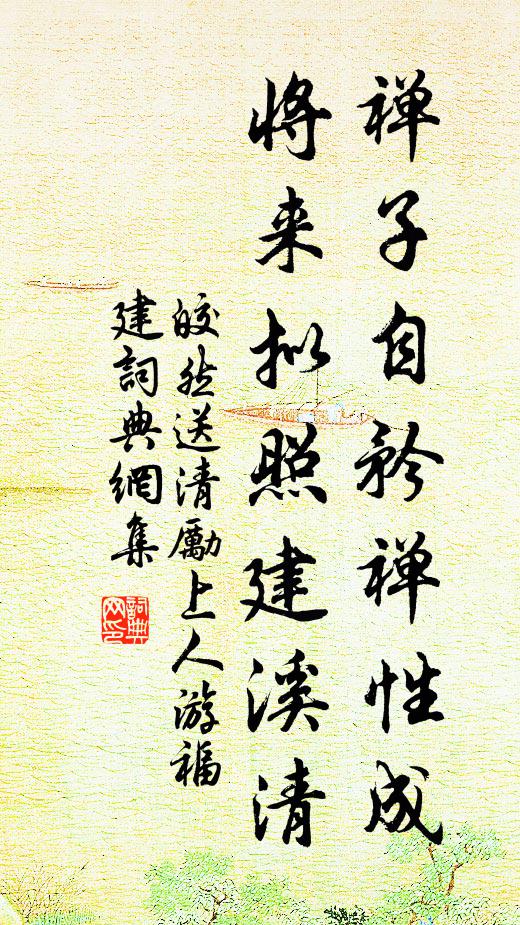 禅子自矜禅性成
将来拟照建溪清
皎然送清勵上人游福
建詞典網集
詞典网印